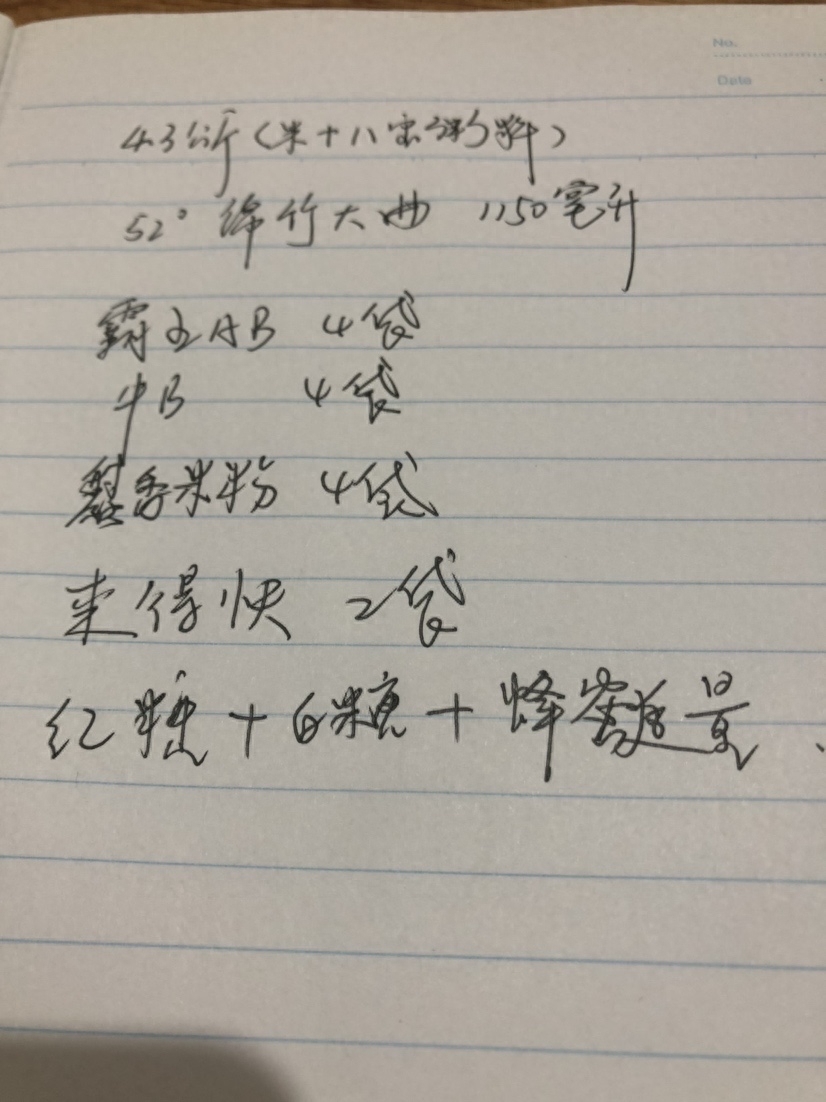 No.
Date
43斤(米+八宝粥料)
52° 绵竹大曲 1150毫升
霸王AB 4袋
牛B 4袋
麝香米粉 4袋
来得快 2袋
红糖+白糖+蜂蜜适量